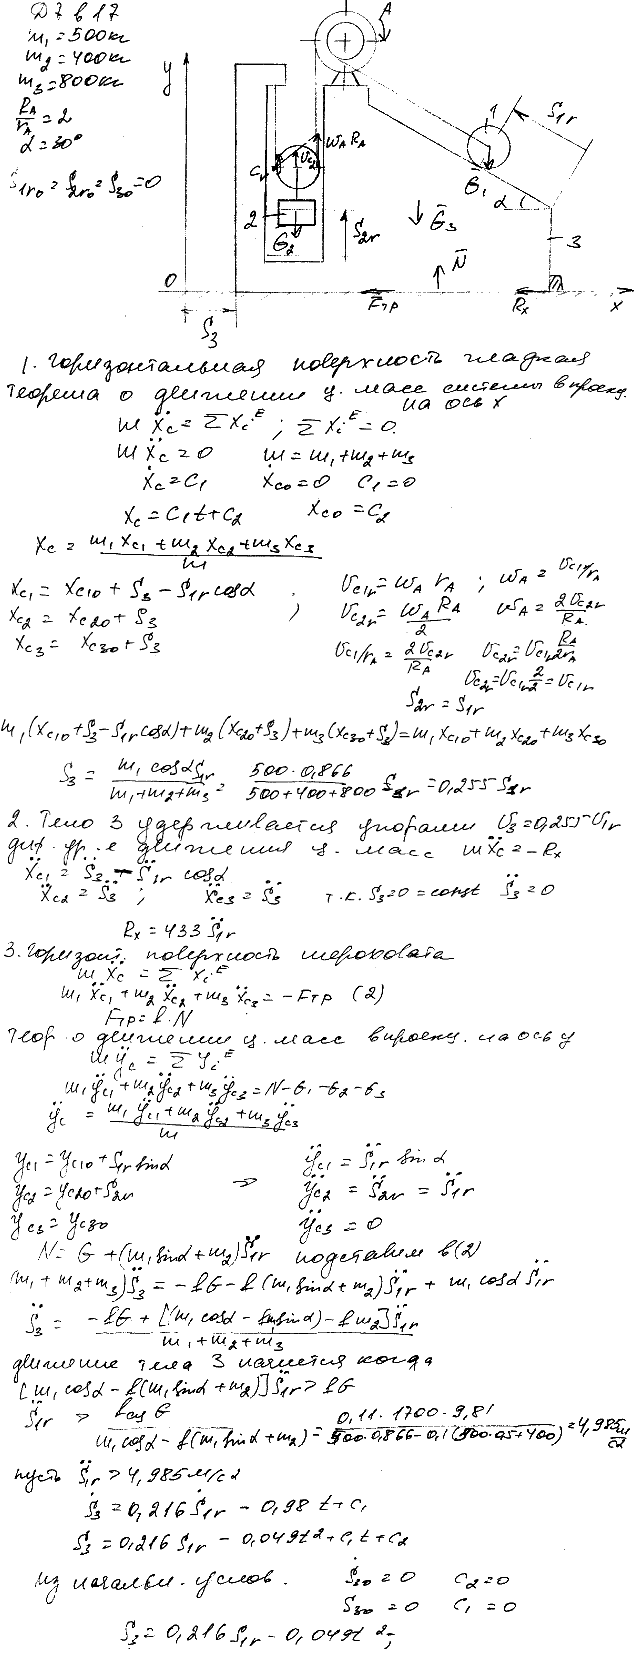 Д7 в17
m₁=500кг
m₂=400кг
m₃=800кг
R_A/r_A=2
α=30°
S₁r₀=S₂r₀=S₃₀=0
y
A
C₂r
U_C2r
ω_A R_A
2
G̅₂
S₂r
G̅₃
N̅
1
S₁r
G̅₁
α
3
0
S₃
F̅тр
R̅x
x
1. Горизонтальная поверхность гладкая
Теорема о движении ц. масс системы в проекц.
на ось x
mẌc=ΣXᵢᴱ; ΣXᵢᴱ=0.
mẌc=0 m=m₁+m₂+m₃
Ẋc=C₁ Ẋc₀=0 C₁=0
Xc=C₁t+C₂ Xc₀=C₂
Xc=(m₁Xc₁+m₂Xc₂+m₃Xc₃)/m
Xc₁=Xc₁₀+S₃-S₁r cosα, Uc₁r=ω_A r_A; ω_A=Uc₁r/r_A
Xc₂=Xc₂₀+S₃; Uc₂r=ω_A R_A/2 ω_A=2Uc₂r/R_A
Xc₃=Xc₃₀+S₃ Uc₁/r_A=2Uc₂r/R_A Uc₂r=Uc₁r R_A/2r_A
Uc₂r=Uc₁r 2/2=Uc₁r
S₂r=S₁r
m₁(Xc₁₀+S₃-S₁r cosα)+m₂(Xc₂₀+S₃)+m₃(Xc₃₀+S₃)=m₁Xc₁₀+m₂Xc₂₀+m₃Xc₃₀
S₃=m₁cosα S₁r/(m₁+m₂+m₃)=500·0,866/(500+400+800) S₁r=0,255 S₁r
2. Тело 3 удерживается упорами U₃=0,255U₁r
диф. ур-е движения ц. масс mẌc=-Rx
Ẍc₁=S̈₃-S̈₁r cosα
Ẍc₂=S̈₃; Ẍc₃=S̈₃ т.к. S₃=0=const S̈₃=0
Rx=433 S̈₁r
3. Горизонт. поверхность шероховата
mẌc=ΣXᵢᴱ
m₁Ẍc₁+m₂Ẍc₂+m₃Ẍc₃=-Fтр (2)
Fтр=f·N
Теор. о движении ц. масс в проекц. на ось y
mÿc=ΣYᵢᴱ
m₁ÿc₁+m₂ÿc₂+m₃ÿc₃=N-G₁-G₂-G₃
ÿc=(m₁ÿc₁+m₂ÿc₂+m₃ÿc₃)/m
yc₁=yc₁₀+S₁r sinα ÿc₁=S̈₁r sinα
yc₂=yc₂₀+S₂r ⇒ ÿc₂=S̈₂r=S̈₁r
yc₃=yc₃₀ ÿc₃=0
N=G+(m₁sinα+m₂)S̈₁r подставим в(2)
(m₁+m₂+m₃)S̈₃=-fG-f(m₁sinα+m₂)S̈₁r+m₁cosα S̈₁r
S̈₃=(-fG+[(m₁cosα-fm₁sinα)-fm₂]S̈₁r)/(m₁+m₂+m₃)
движение тела 3 начнется когда
[m₁cosα-f(m₁sinα+m₂)]S̈₁r>fG
S̈₁r>fсцG/(m₁cosα-f(m₁sinα+m₂))=0,11·1700·9,81/(500·0,866-0,1(500·0,5+400))=4,985м/с2
пусть S̈₁r>4,985м/с2
Ṡ₃=0,216Ṡ₁r-0,98t+C₁
S₃=0,216S₁r-0,049t²+C₁t+C₂
из начальн. услов. Ṡ₃₀=0 C₂=0
S₃₀=0 C₁=0
S₃=0,216S₁r-0,049t²;